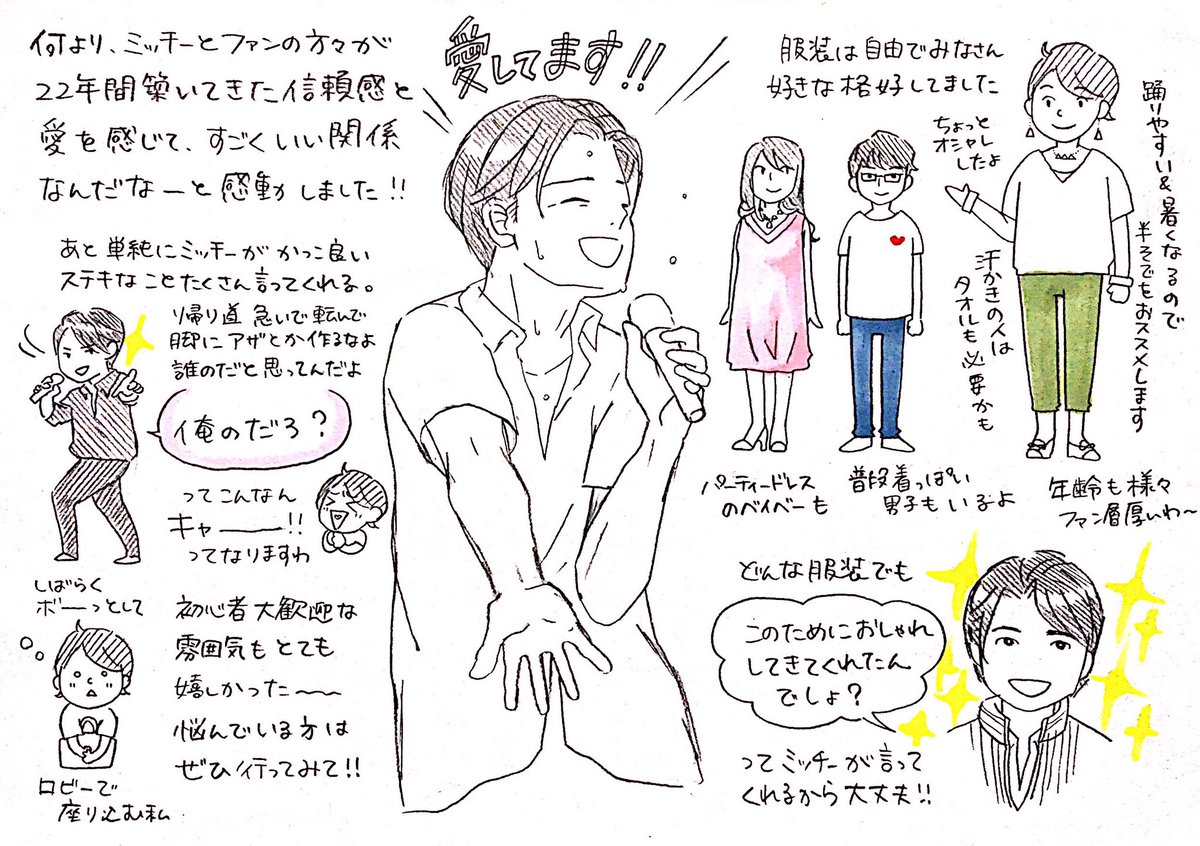 何より、ミッチーとファンの方々が
22年間築いてきた信頼感と
愛を感じて、すごくいい関係
なんだなーと感動しました!!
あと単純にミッチーがかっこ良い
ステキなことたくさん言ってくれる。
帰り道 急いで転んで
脚にアザとか作るなよ
誰のだと思ってんだよ
俺のだろ?
ってこんなん
キャー——!!
ってなりますわ
しばらく
ボーーっとして
ロビーで
座り込む私
初心者大歓迎な
雰囲気もとても
嬉しかった〜〜
悩んでいる方は
ぜひ行ってみて!!
愛してます!!
服装は自由でみなさん
好きな格好してました
ちょっと
オシャレ
したよ
踊りやすい&暑くなるので
半そでをおススメします
汗かきの人は
タオルも必要かも
パーティードレス
のベイベーも
普段着っぽい
男子もいるよ
年齢も様々
ファン層厚いわ〜
どんな服装でも
このためにおしゃれ
してきてくれたん
でしょ?
ってミッチーが言って
くれるから大丈夫!!